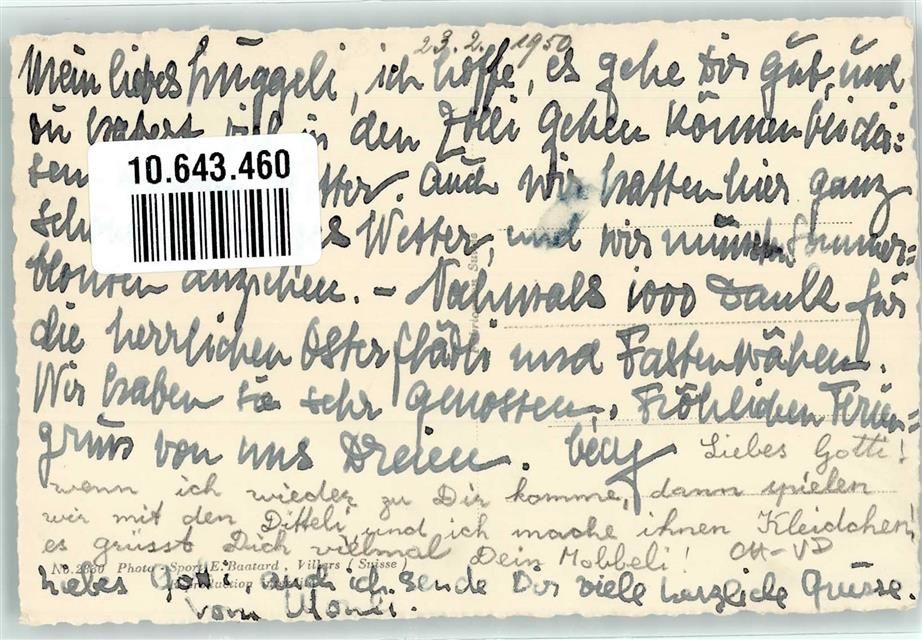 23.2. 1950
Mein liebes Huggeli, ich hoffe, es gehe Dir gut, und
du habest viel in den Zolli gehen können bei die=
sem tter. Auch wir hatten hier ganz
schö s Wetter, und wir mussten Sommer=
blousen anziehen. – Nochmals 1000 Dank für
die herrlichen Osterflädli und Fastenwähen.
Wir haben sie sehr genossen. Fröhlichen Ferien=
gruss von uns Dreien.
Liebes Gotti!
wenn ich wieder zu Dir komme, dann spielen
wir mit den Ditteli, und ich mache ihnen Kleidchen,
es grüsst Dich vielmal Dein Mobbeli! CH-VD
No. 2830 Photo - Sport E. Baatard, Villars (Suisse)
Liebes Gotti, auch ich sende Dir viele herzliche Grüsse.
vom
10.643.460